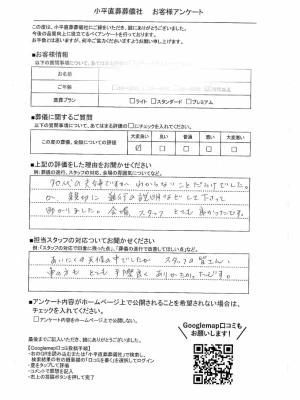 小平直葬葬儀社　お客様アンケート
この度は、小平直葬葬儀社にご縁をいただき、誠にありがとうございました。
今後の品質向上に役立てるべくアンケートを行っております。
お手数とは思いますが、何卒ご協力くださいますようお願い申し上げます。
■お客様情報
以下の質問事項について、あてはまる評価の
お名前
ご年齢
直葬プラン □ライト □スタンダード □プレミアム
■葬儀に関するご質問
以下の質問事項について、あてはまる評価の□にチェックを入れてください。
大変良い 良い 普通 悪い 大変悪い
この度の葬儀、全般についての評価
■上記の評価をした理由をお聞かせください
70代の夫婦ですが、わからないことだらけでした。
が、親切に
助かりました。会場、スタッフ とても良かったです。
■担当スタッフの対応についてお聞かせください
あいにくの天候の中でしたが スタッフの皆さん、
車の方も とても 手際良く ありがたかったです。
■アンケート内容がホームページ上で公開されることを希望されない場合は、
チェックを入れてください。
□アンケート内容をホームページ上で公開しない。
Googlemap口コミも
お願いします！
最後までご記入いただき、誠にありがとうございました。
【Googlemap口コミ投稿手順】
・右のQRを読み込むまたは「小平直葬葬儀社」で検索し、
・星をタップして評価
・コメントで感想を記入
・右上の投稿ボタンを押して完了